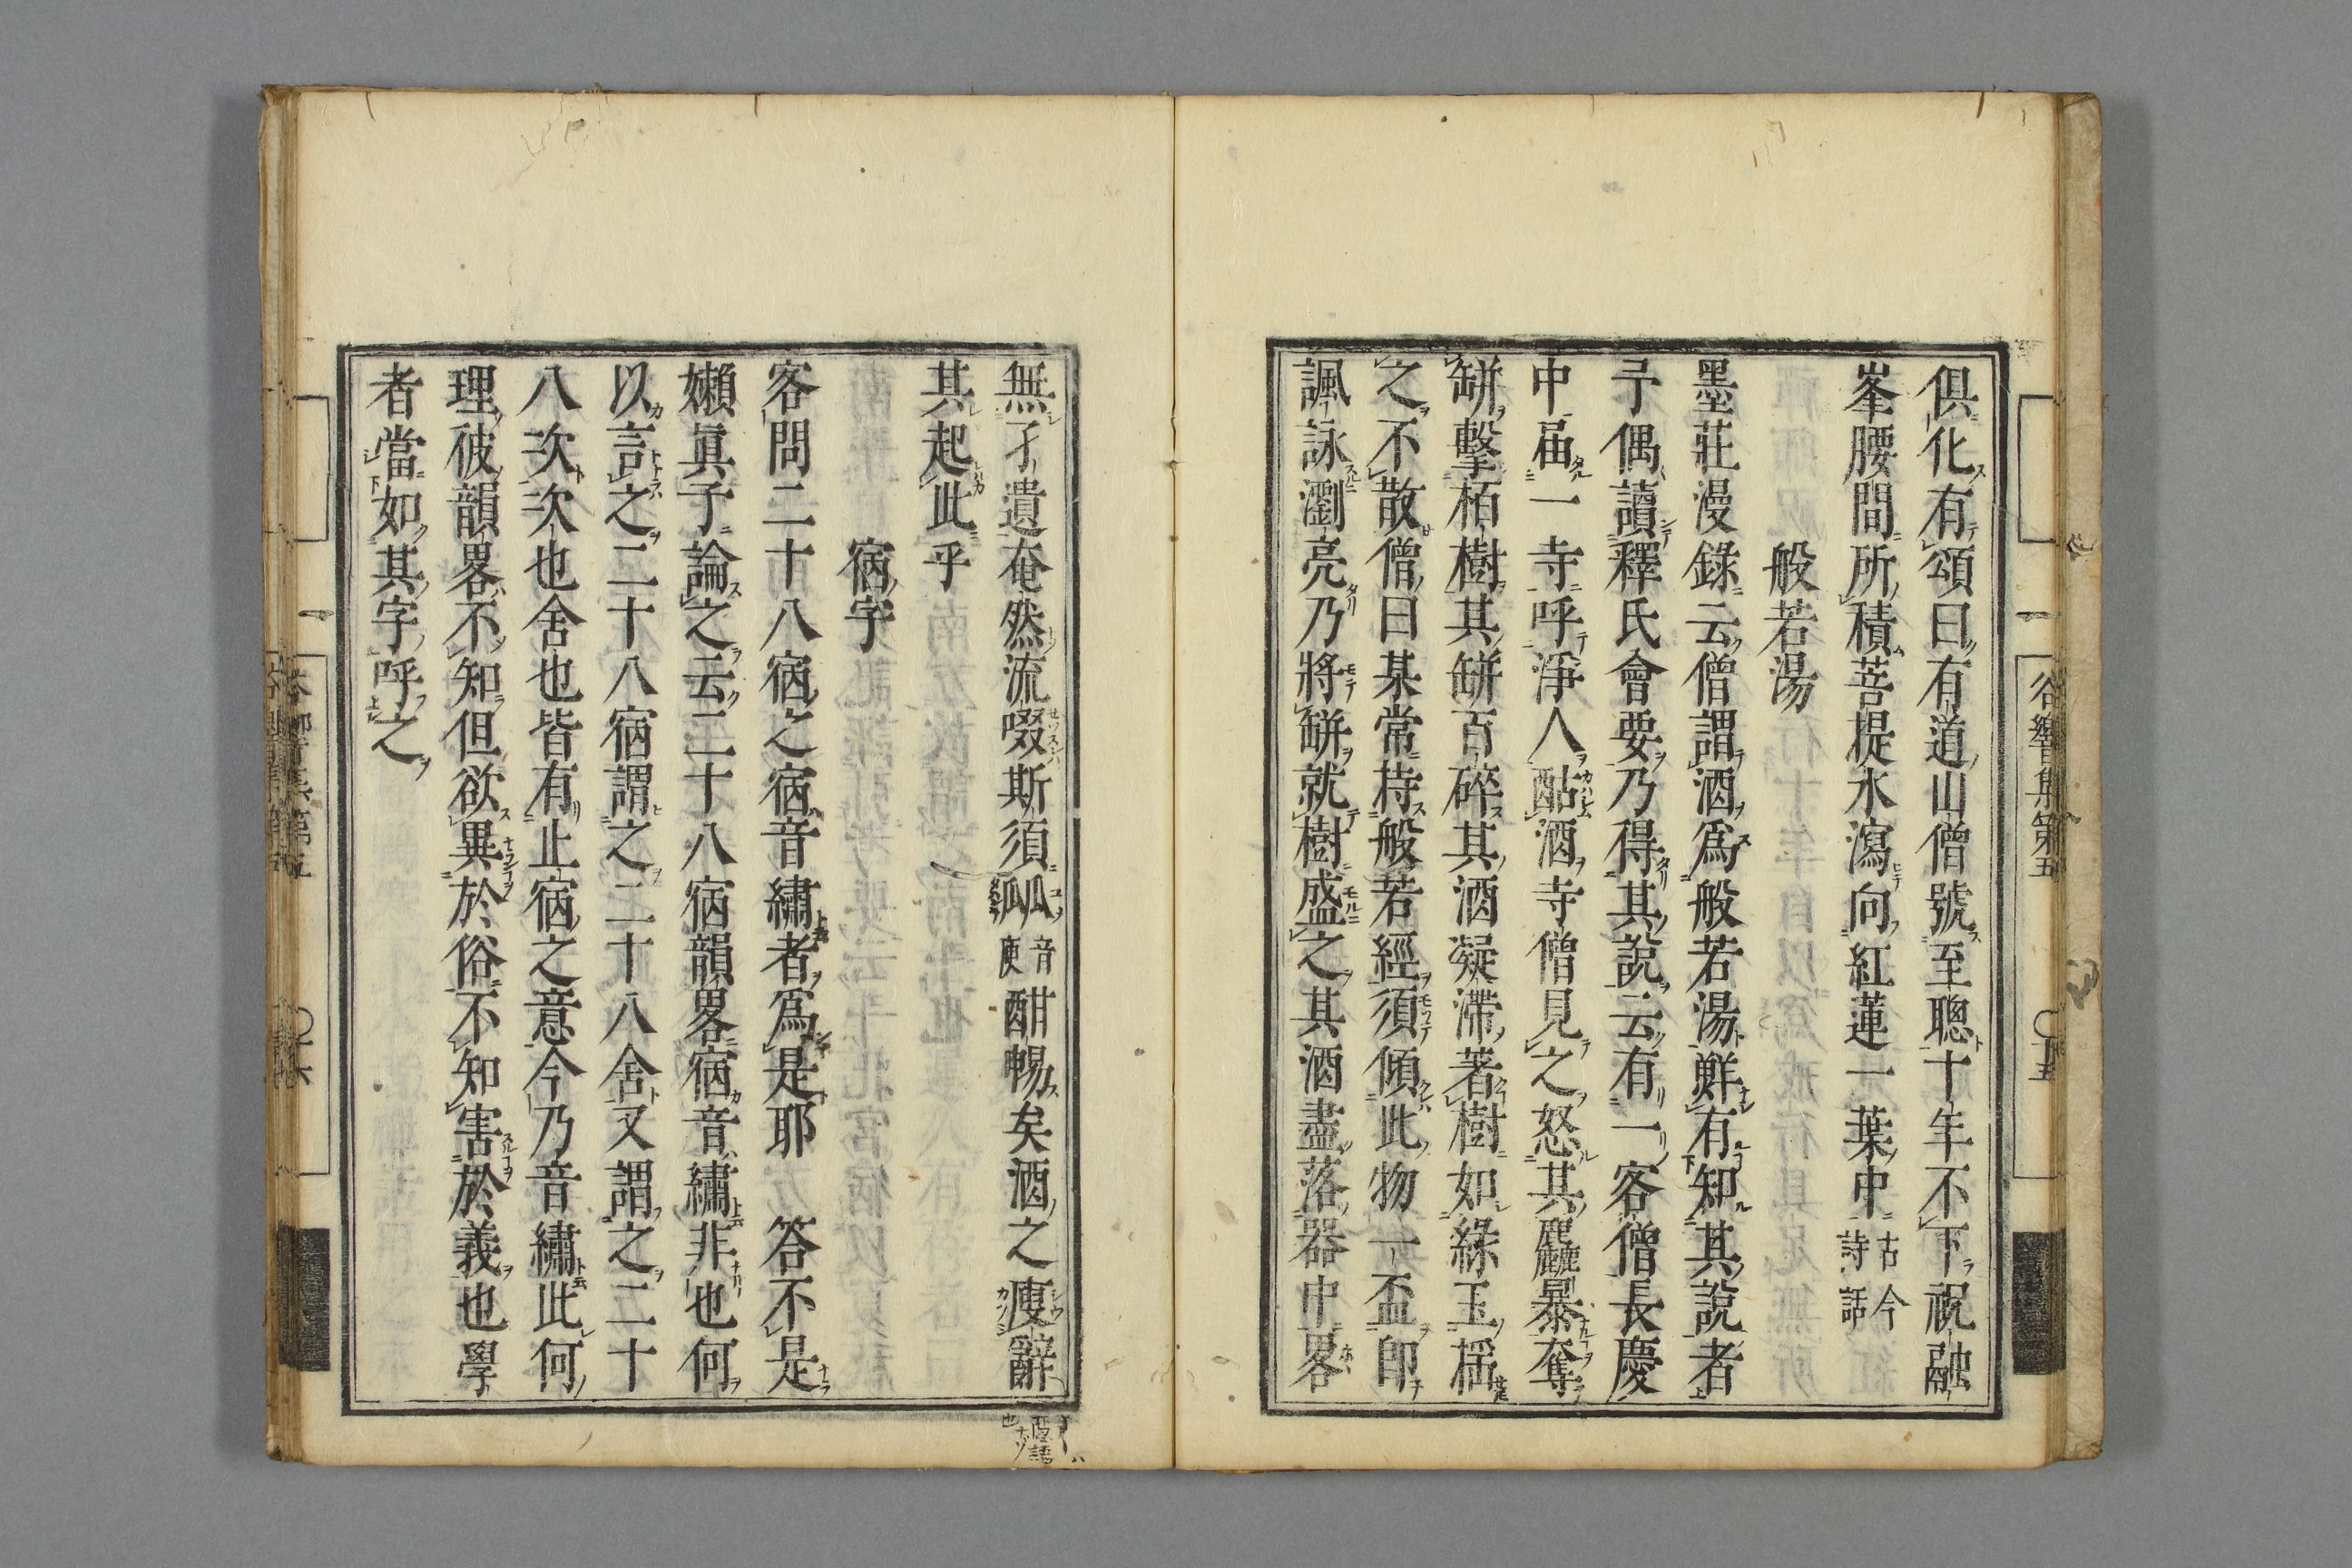 俱化有頌曰有道山僧號至聰十年不下祝融
峯腰間所積菩提水瀉向紅蓮一葉中古今詩話
般若湯
墨莊漫錄云僧謂酒爲般若湯鮮有知其說者
予偶讀釋氏會要乃得其說云有一客僧長慶
中届一寺呼淨人酤酒寺僧見之怒其麤暴奪
缾擊栢樹其缾百碎其酒凝滯著樹如綠玉搖
之不散僧曰某常持般若經須傾此物一盃即
諷詠瀏亮乃將缾就樹盛之其酒盡落器中畧
谷響集第五
〇十五
無孑遺奄然流啜斯須𤬏音庾酣暢矣酒之廋辭
其起此乎
宿字
客問二十八宿之宿音繡者爲是耶 答不是
嬾眞子論之云二十八宿韻畧宿音繡非也何
以言之二十八宿謂之二十八舍又謂之二十
八次次也舍也皆有止宿之意今乃音繡此何
理彼韻畧不知但欲異於俗不知害於義也學
者當如其字呼之